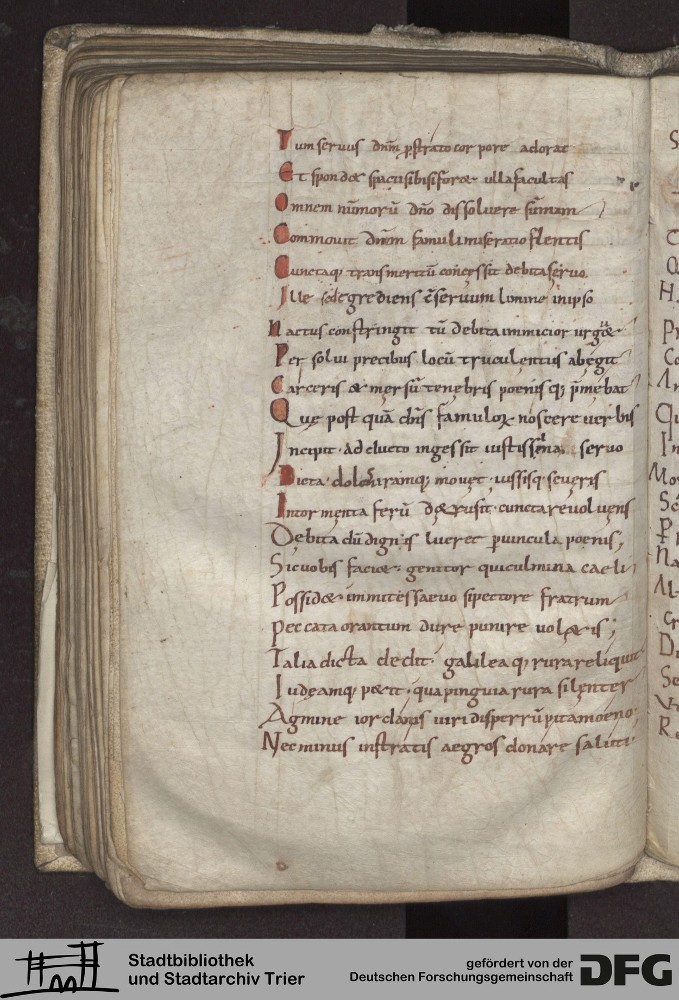 Tum servus dnm pstrato corpore adorat
Et spondet spacii si sibi foret ulla facultas
Omnem numorū dño dissolvere sūmam
Commovit dnm famuli miseratio flentis
Cunctaq; trans meritū concessit debita servo.
Ille egrediens c̄servum limine in ipso
Nactus constringit tū debita inmicior urget
Per solvi precibus locū truculentus abegit
Carceris & mersū tenebris poenisq; p̄mebat
Quę post quā famulor noscere verbis
Incipit ad ducto ingessit iustissima servo
Dicta dolor iramq; movet iussisq; severis
In tormenta ferū detrusit cuncta revolvens
Debita dū dignis lueret p vincula poenis;
Sic vobis faciet genitor qui culmina caeli
Possidet inmites saevo si pectore fratrum
Peccata orantum dure punire voletis;
Talia dicta dedit galileaq; rura reliquit
Iudeamq; petit qua pinguia rura silenter
Agmine iordanis viridis perrūpit amoeno
Nec minus instratis aegros donare saluti
Stadtbibliothek
und Stadtarchiv Trier
gefördert von der
Deutschen Forschungsgemeinschaft
DFG